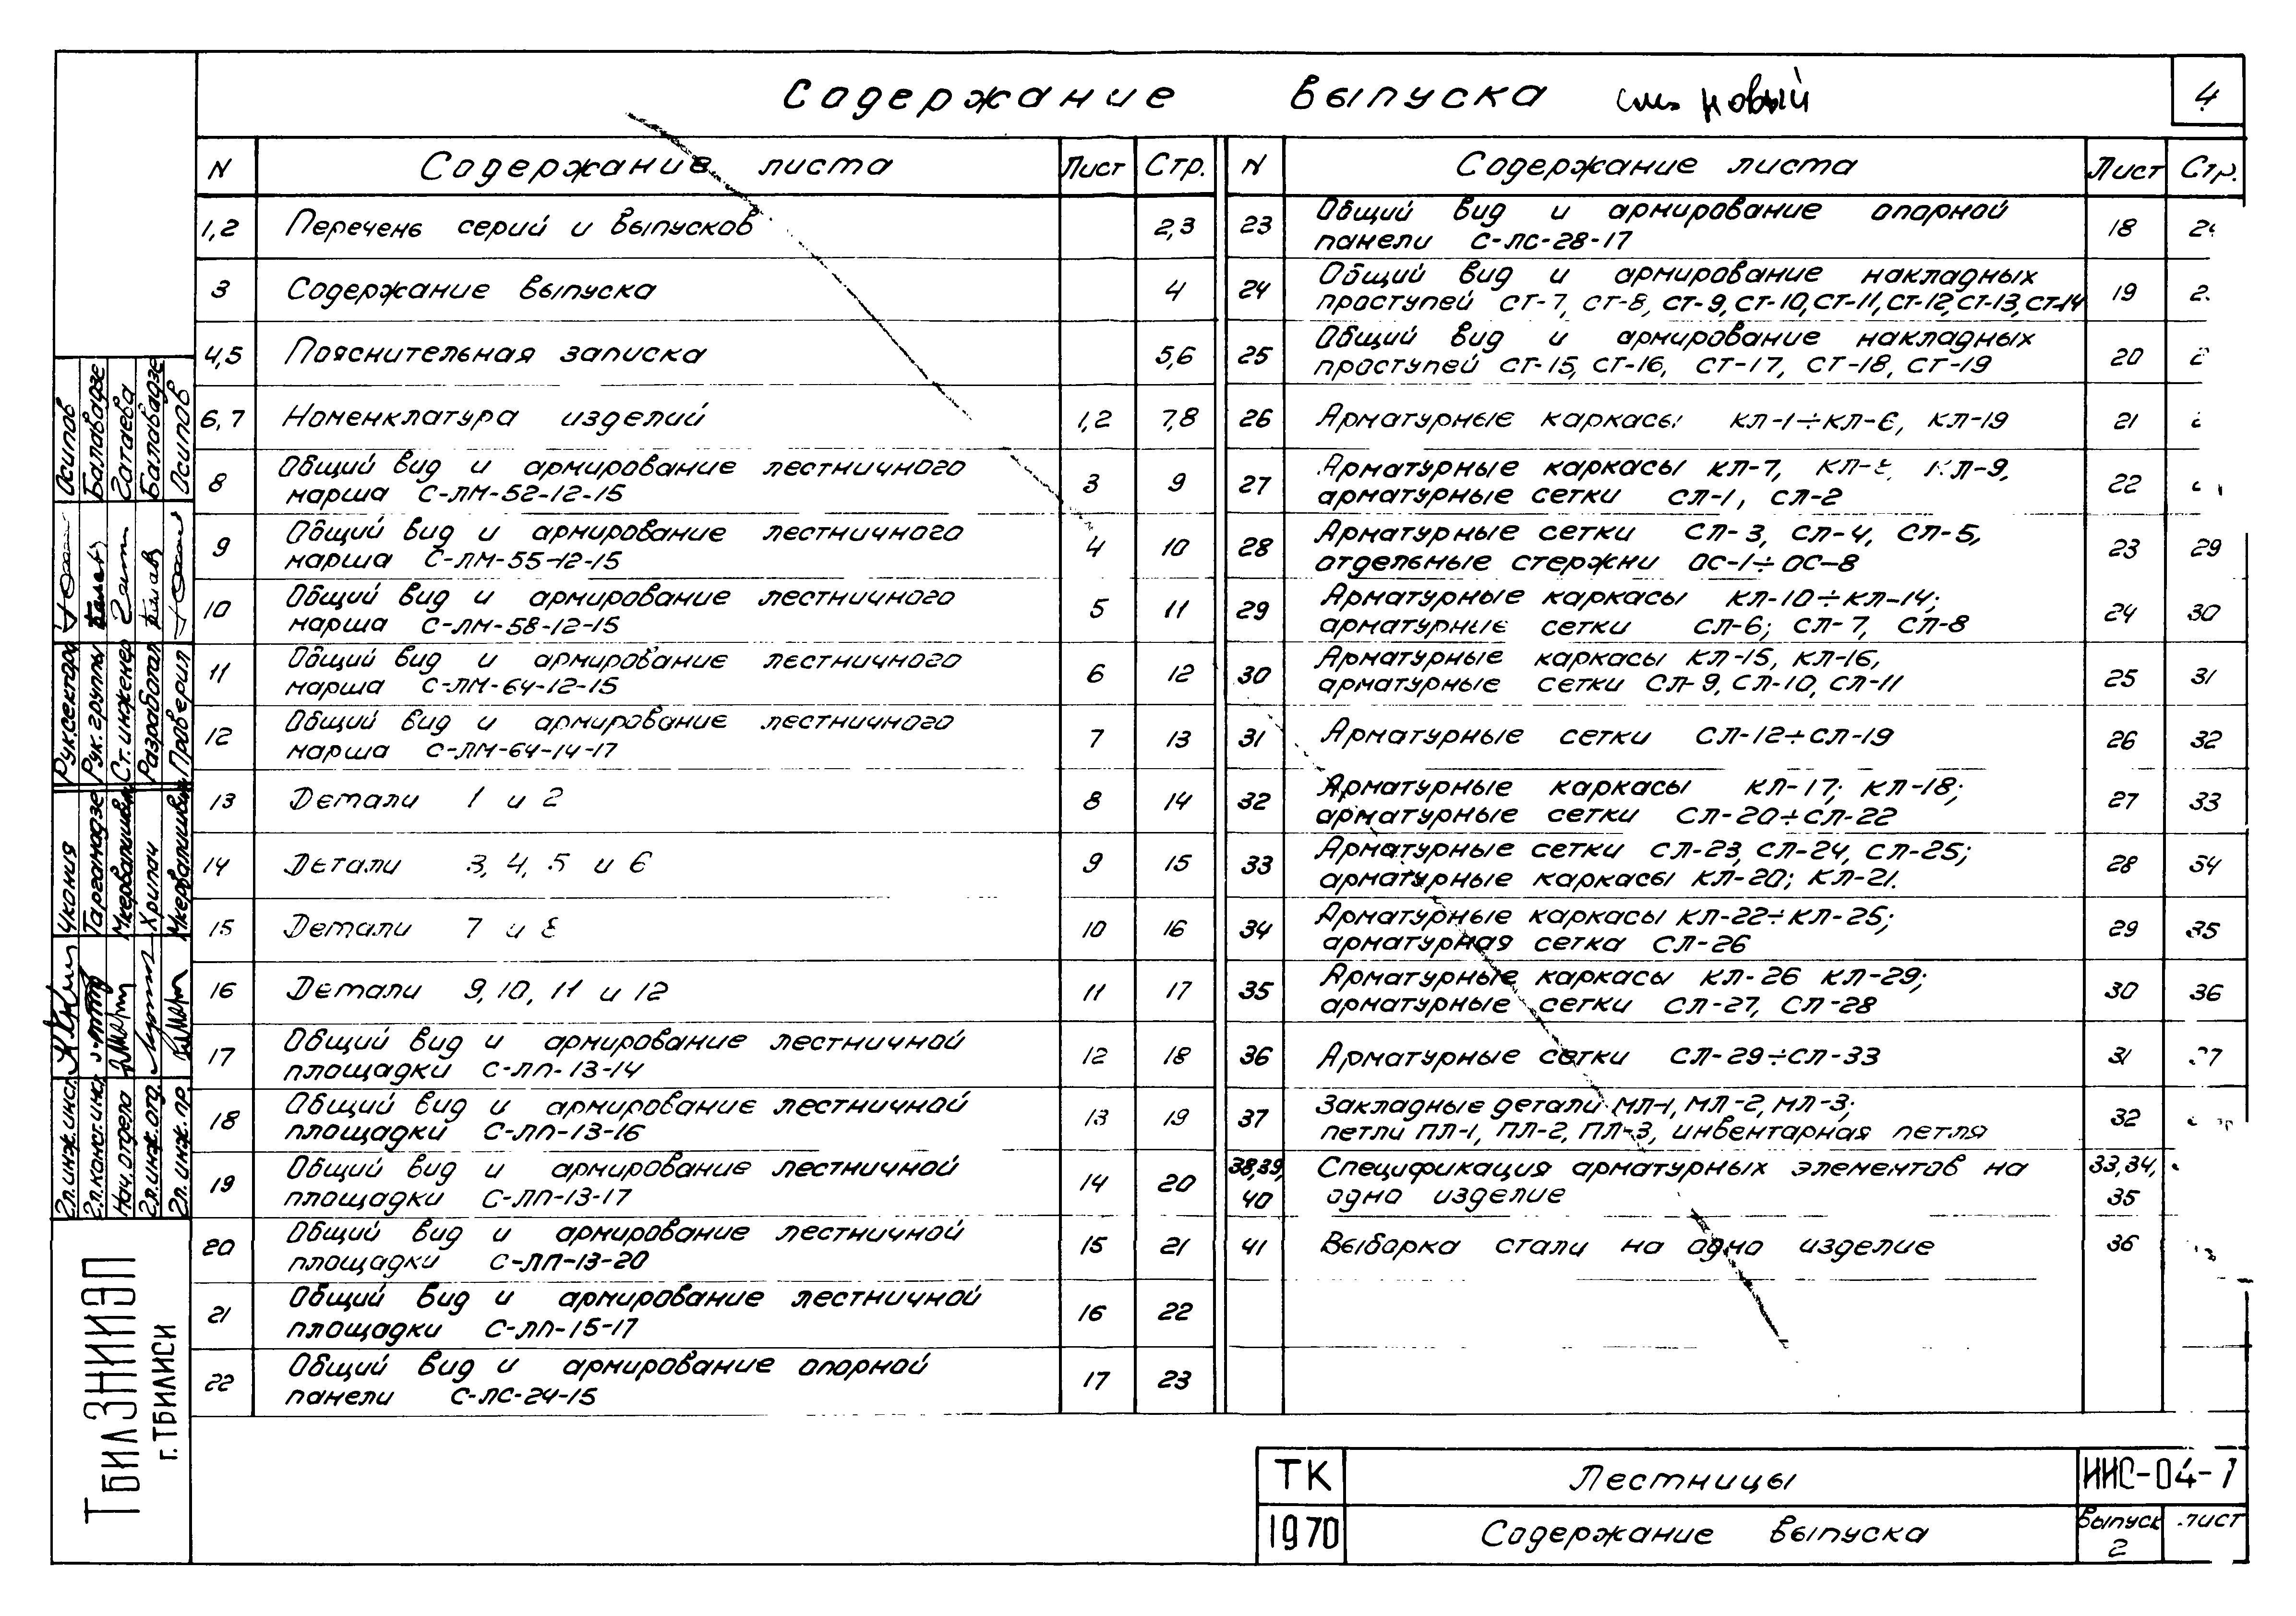 Содержание выпуска см. новый
4
N Содержание листа Лист Стр.
1,2 Перечень серий и выпусков 2,3
3 Содержание выпуска 4
4,5 Пояснительная записка 5,6
6,7 Номенклатура изделий 1,2 7,8
8 Общий вид и армирование лестничного
марша С-ЛМ-52-12-15 3 9
9 Общий вид и армирование лестничного
марша С-ЛМ-55-12-15 4 10
10 Общий вид и армирование лестничного
марша С-ЛМ-58-12-15 5 11
11 Общий вид и армирование лестничного
марша С-ЛМ-64-12-15 6 12
12 Общий вид и армирование лестничного
марша С-ЛМ-64-14-17 7 13
13 Детали 1 и 2 8 14
14 Детали 3, 4, 5 и 6 9 15
15 Детали 7 и 8 10 16
16 Детали 9, 10, 11 и 12 11 17
17 Общий вид и армирование лестничной
площадки С-ЛП-13-14 12 18
18 Общий вид и армирование лестничной
площадки С-ЛП-13-16 13 19
19 Общий вид и армирование лестничной
площадки С-ЛП-13-17 14 20
20 Общий вид и армирование лестничной
площадки С-ЛП-13-20 15 21
21 Общий вид и армирование лестничной
площадки С-ЛП-15-17 16 22
22 Общий вид и армирование опорной
панели С-ЛС-24-15 17 23
N Содержание листа Лист Стр.
23 Общий вид и армирование опорной
панели С-ЛС-28-17 18
24 Общий вид и армирование накладных
проступей СТ-7, СТ-8, СТ-9, СТ-10, СТ-11, СТ-12, СТ-13, СТ-14 19
25 Общий вид и армирование накладных
проступей СТ-15, СТ-16, СТ-17, СТ-18, СТ-19 20
26 Арматурные каркасы КЛ-1÷КЛ-6, КЛ-19 21
27 Арматурные каркасы КЛ-7, КЛ-8, КЛ-9,
арматурные сетки СЛ-1, СЛ-2 22
28 Арматурные сетки СЛ-3, СЛ-4, СЛ-5,
отдельные стержни ОС-1÷ОС-8 23 29
29 Арматурные каркасы КЛ-10÷КЛ-14;
арматурные сетки СЛ-6; СЛ-7, СЛ-8 24 30
30 Арматурные каркасы КЛ-15, КЛ-16,
арматурные сетки СЛ-9, СЛ-10, СЛ-11 25 31
31 Арматурные сетки СЛ-12÷СЛ-19 26 32
32 Арматурные каркасы КЛ-17; КЛ-18;
арматурные сетки СЛ-20÷СЛ-22 27 33
33 Арматурные сетки СЛ-23, СЛ-24, СЛ-25;
арматурные каркасы КЛ-20; КЛ-21. 28 34
34 Арматурные каркасы КЛ-22÷КЛ-25;
арматурная сетка СЛ-26 29 35
35 Арматурные каркасы КЛ-26 КЛ-29;
арматурные сетки СЛ-27, СЛ-28 30 36
36 Арматурные сетки СЛ-29÷СЛ-33 31 37
37 Закладные детали МЛ-1, МЛ-2, МЛ-3;
петли ПЛ-1, ПЛ-2, ПЛ-3, инвентарная петля 32
38,39, Спецификация арматурных элементов на 33,34,
40 одно изделие 35
41 Выборка стали на одно изделие 36
ТК Лестницы ИИС-04-7
1970 Содержание выпуска Выпуск 2 лист
Рук.сектора Осипов
Рук. группы Балавадзе
Ст. инженер Зотаева
Разработал Балавадзе
Проверил Осипов
Гл.инж.инст. Чкония
Гл.конст.инст. Таргамадзе
Нач. отдела Мкервалишвили
Гл.инж.отд. Хрипач
Гл. инж. пр. Мкервалишвили
ТбилЗНИИЭП
г. ТБИЛИСИ